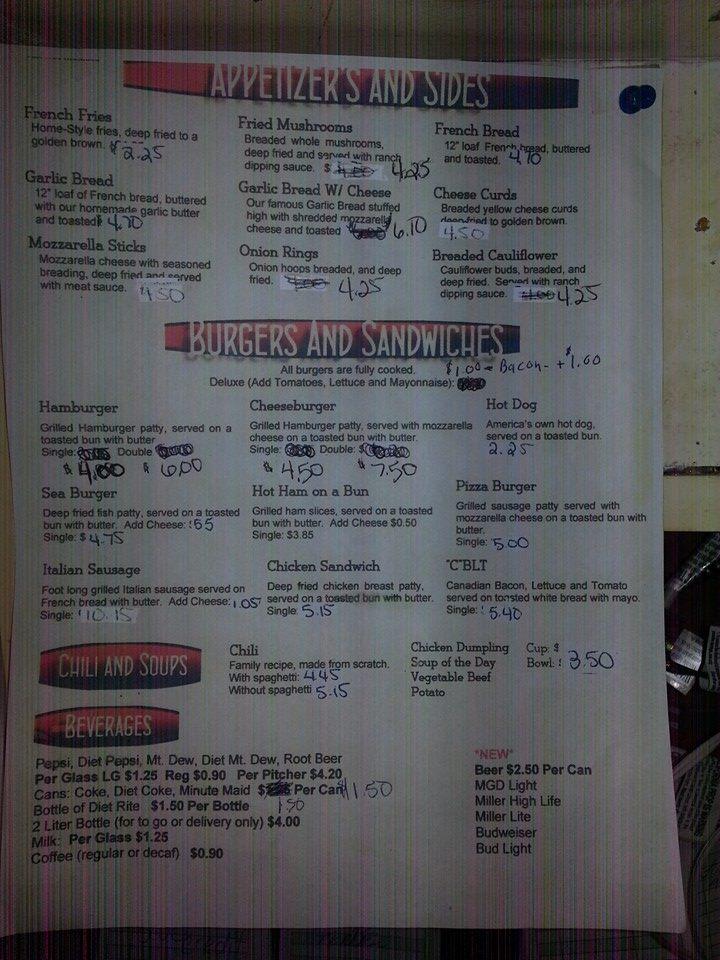 APPETIZER'S AND SIDES
French Fries
Home-Style fries, deep fried to a
golden brown. $2.25
Fried Mushrooms
Breaded whole mushrooms,
deep fried and served with ranch
dipping sauce. $ 4.25
French Bread
12" loaf French bread, buttered
and toasted. 4.70
Garlic Bread
12" loaf of French bread, buttered
with our homemade garlic butter
and toasted $ 4.70
Garlic Bread W/ Cheese
Our famous Garlic Bread stuffed
high with shredded mozzarella
cheese and toasted 6.70
Cheese Curds
Breaded yellow cheese curds
deep fried to golden brown.
4.50
Mozzarella Sticks
Mozzarella cheese with seasoned
breading, deep fried and served
with meat sauce. 4.50
Onion Rings
Onion hoops breaded, and deep
fried. 4.25
Breaded Cauliflower
Cauliflower buds, breaded, and
deep fried. Served with ranch
dipping sauce. 4.25
BURGERS AND SANDWICHES
All burgers are fully cooked.
Deluxe (Add Tomatoes, Lettuce and Mayonnaise): $1.00 - Bacon - + $1.00
Hamburger
Grilled Hamburger patty, served on a
toasted bun with butter
Single: Double
$4.00 $6.00
Cheeseburger
Grilled Hamburger patty, served with mozzarella
cheese on a toasted bun with butter.
Single: Double: $
$4.50 $7.50
Hot Dog
America's own hot dog,
served on a toasted bun.
2.25
Sea Burger
Deep fried fish patty, served on a toasted
bun with butter. Add Cheese: 55
Single: $ 4.75
Hot Ham on a Bun
Grilled ham slices, served on a toasted
bun with butter. Add Cheese $0.50
Single: $3.85
Pizza Burger
Grilled sausage patty served with
mozzarella cheese on a toasted bun with
butter.
Single: 5.00
Italian Sausage
Foot long grilled Italian sausage served on
French bread with butter. Add Cheese: 1.05
Single: 10.15
Chicken Sandwich
Deep fried chicken breast patty,
served on a toasted bun with butter.
Single: 5.15
"C"BLT
Canadian Bacon, Lettuce and Tomato
served on toasted white bread with mayo.
Single: 5.40
CHILI AND SOUPS
Chili
Family recipe, made from scratch.
With spaghetti: 4.45
Without spaghetti 5.15
Chicken Dumpling
Soup of the Day
Vegetable Beef
Potato
Cup: $
Bowl: 3.50
BEVERAGES
Pepsi, Diet Pepsi, Mt. Dew, Diet Mt. Dew, Root Beer
Per Glass LG $1.25 Reg $0.90 Per Pitcher $4.20
Cans: Coke, Diet Coke, Minute Maid $ Per Can $1.50
Bottle of Diet Rite $1.50 Per Bottle 1.50
2 Liter Bottle (for to go or delivery only) $4.00
Milk: Per Glass $1.25
Coffee (regular or decaf) $0.90
*NEW*
Beer $2.50 Per Can
MGD Light
Miller High Life
Miller Lite
Budweiser
Bud Light